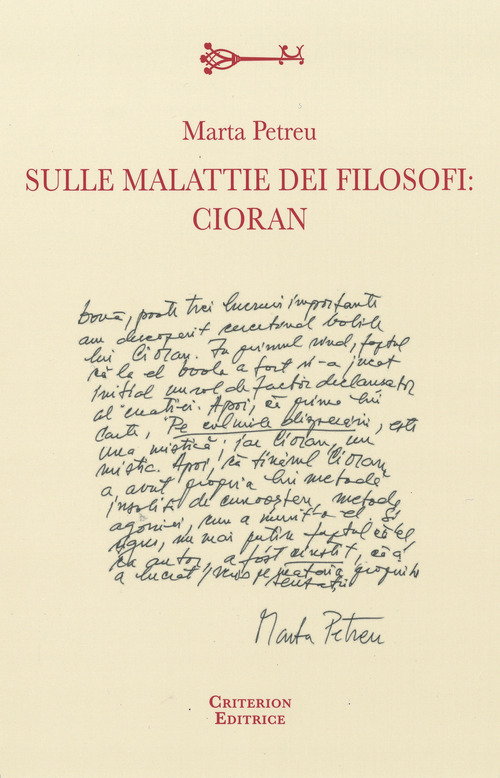 Marta Petreu
SULLE MALATTIE DEI FILOSOFI:
CIORAN
două, poate trei lucruri importante
am descoperit cercetând bolile
lui Cioran. În primul rînd, faptul
că la el boala a fost și-a jucat
inițial un rol de factor declanșator
al creației. Apoi, că prima lui
carte, Pe culmile disperării, este
una mistică; iar Cioran, un
mistic. Apoi, că tînărul Cioran
a avut propria lui metodă
insolită de cunoaștere, metoda
agoniei, cum a numit-o el
sigur, nu mai puțin faptul că el
ca autor, a fost cinstit, că a
a lucrat, pe materia propriilor
Marta Petreu
CRITERION
EDITRICE